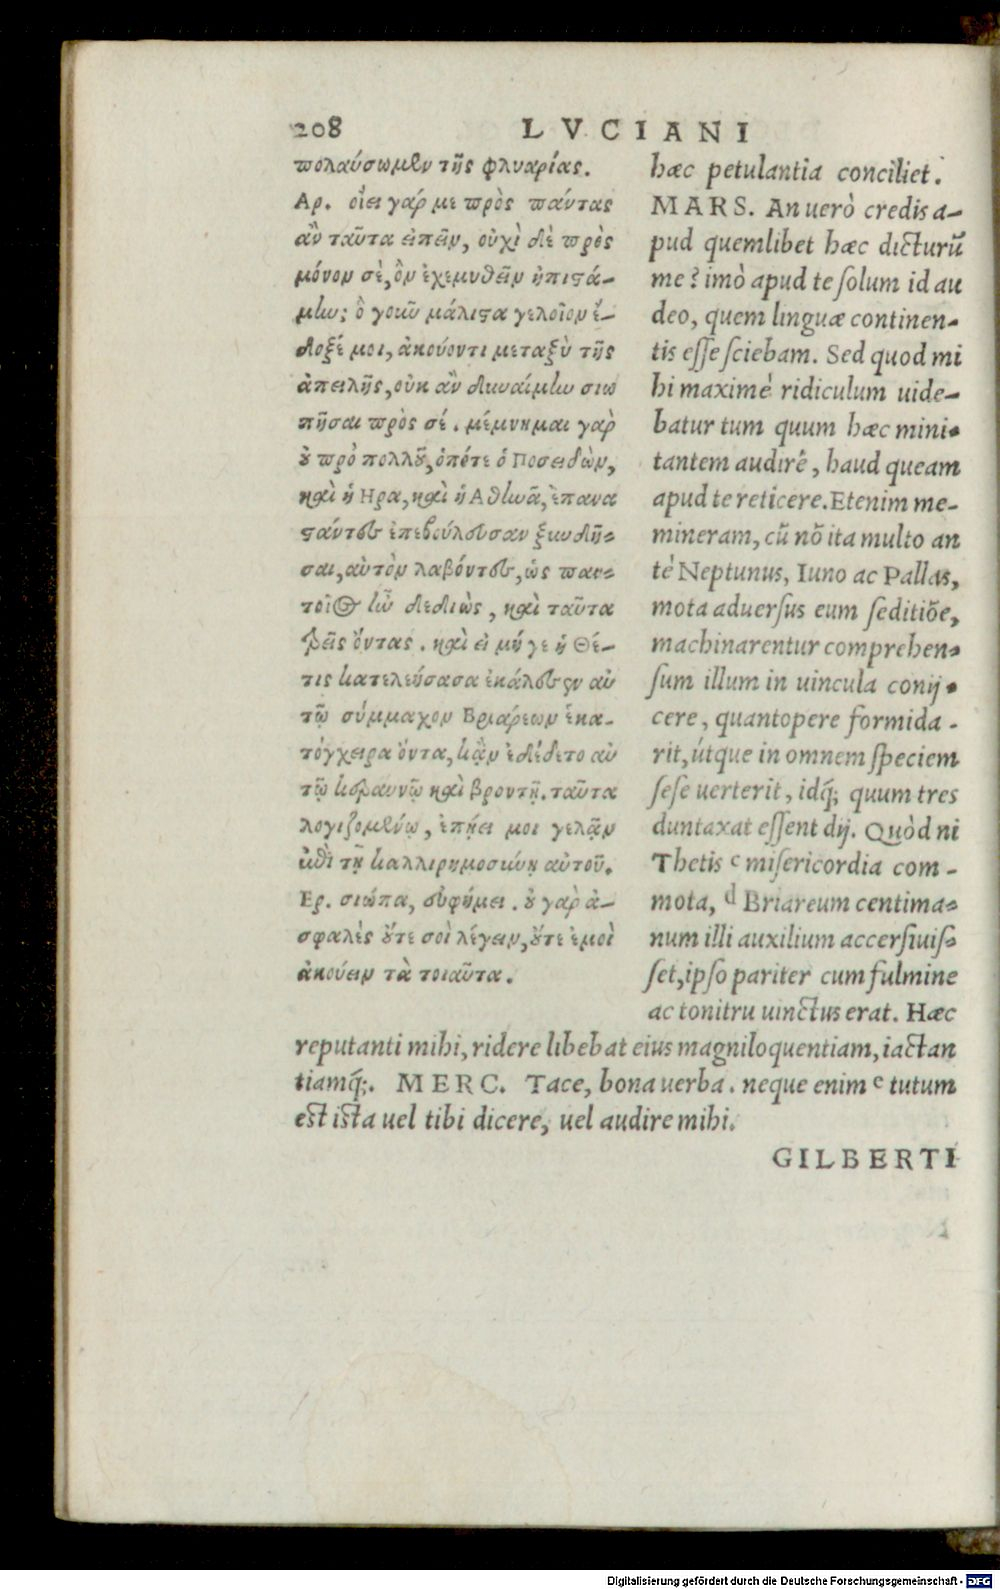 208 LVCIANI
πολαύσωμεν τῆς φλυαρίας.
Αρ. οἴει γάρ με πρὸς πάντας
ἂν ταῦτα εἰπεῖν, οὐχὶ δὲ πρὸς
μόνον σὲ, ὃν ἐχεμυθεῖν ἠπιστά-
μην; ὃ γοῦν μάλιστα γελοῖον ἔ-
δοξέ μοι, ἀκούοντι μεταξὺ τῆς
ἀπειλῆς, οὐκ ἂν δυναίμην σιω
πῆσαι πρὸς σέ. μέμνημαι γὰρ
οὐ πρὸ πολλοῦ, ὁπότε ὁ Ποσειδῶν,
καὶ ἡ Ηρα, καὶ ἡ Αθηνᾶ, ἐπανα
στάντες ἐπεβούλευσαν ξυνδῆ-
σαι, αὐτὸν λαβόντες, ὡς παν-
τοῖος ἦν δεδιὼς, καὶ ταῦτα
τρεῖς ὄντας. καὶ εἰ μή γε ἡ Θέ-
τις κατελεήσασα ἐκάλεσεν αὐ
τῷ σύμμαχον Βριάρεων ἑκα-
τόγχειρα ὄντα, κἂν ἐδέδετο αὐ
τῷ κεραυνῷ καὶ βροντῇ. ταῦτα
λογιζομένῳ, ἐπῄει μοι γελᾷν
ἐπὶ τῇ καλλιρημοσύνῃ αὐτοῦ.
Ερ. σιώπα, εὐφήμει. οὐ γὰρ ἀ-
σφαλὲς οὔτε σοὶ λέγειν, οὔτε ἐμοὶ
ἀκούειν τὰ τοιαῦτα.
hæc petulantia conciliet.
MARS. An uerò credis a-
pud quemlibet hæc dicturũ
me? imò apud te solum id au
deo, quem linguæ continen-
tis esse sciebam. Sed quod mi
hi maximè ridiculum uide-
batur tum quum hæc mini-
tantem audirẽ, haud queam
apud te reticere. Etenim me-
mineram, cũ nõ ita multo an
tè Neptunus, Iuno ac Pallas,
mota aduersus eum seditiõe,
machinarentur comprehen-
sum illum in uincula conij-
cere, quantopere formida-
rit, útque in omnem speciem
sese uerterit, idq́; quum tres
duntaxat essent dij. Quòd ni
Thetis c misericordia com-
mota, d Briareum centima-
num illi auxilium accersiuis-
set, ipso pariter cum fulmine
ac tonitru uinctus erat. Hæc
reputanti mihi, ridere libebat eius magniloquentiam, iactan
tiamq́;. MERC. Tace, bona uerba. neque enim e tutum
est ista uel tibi dicere, uel audire mihi.
GILBERTI
Digitalisierung gefördert durch die Deutsche Forschungsgemeinschaft - DFG